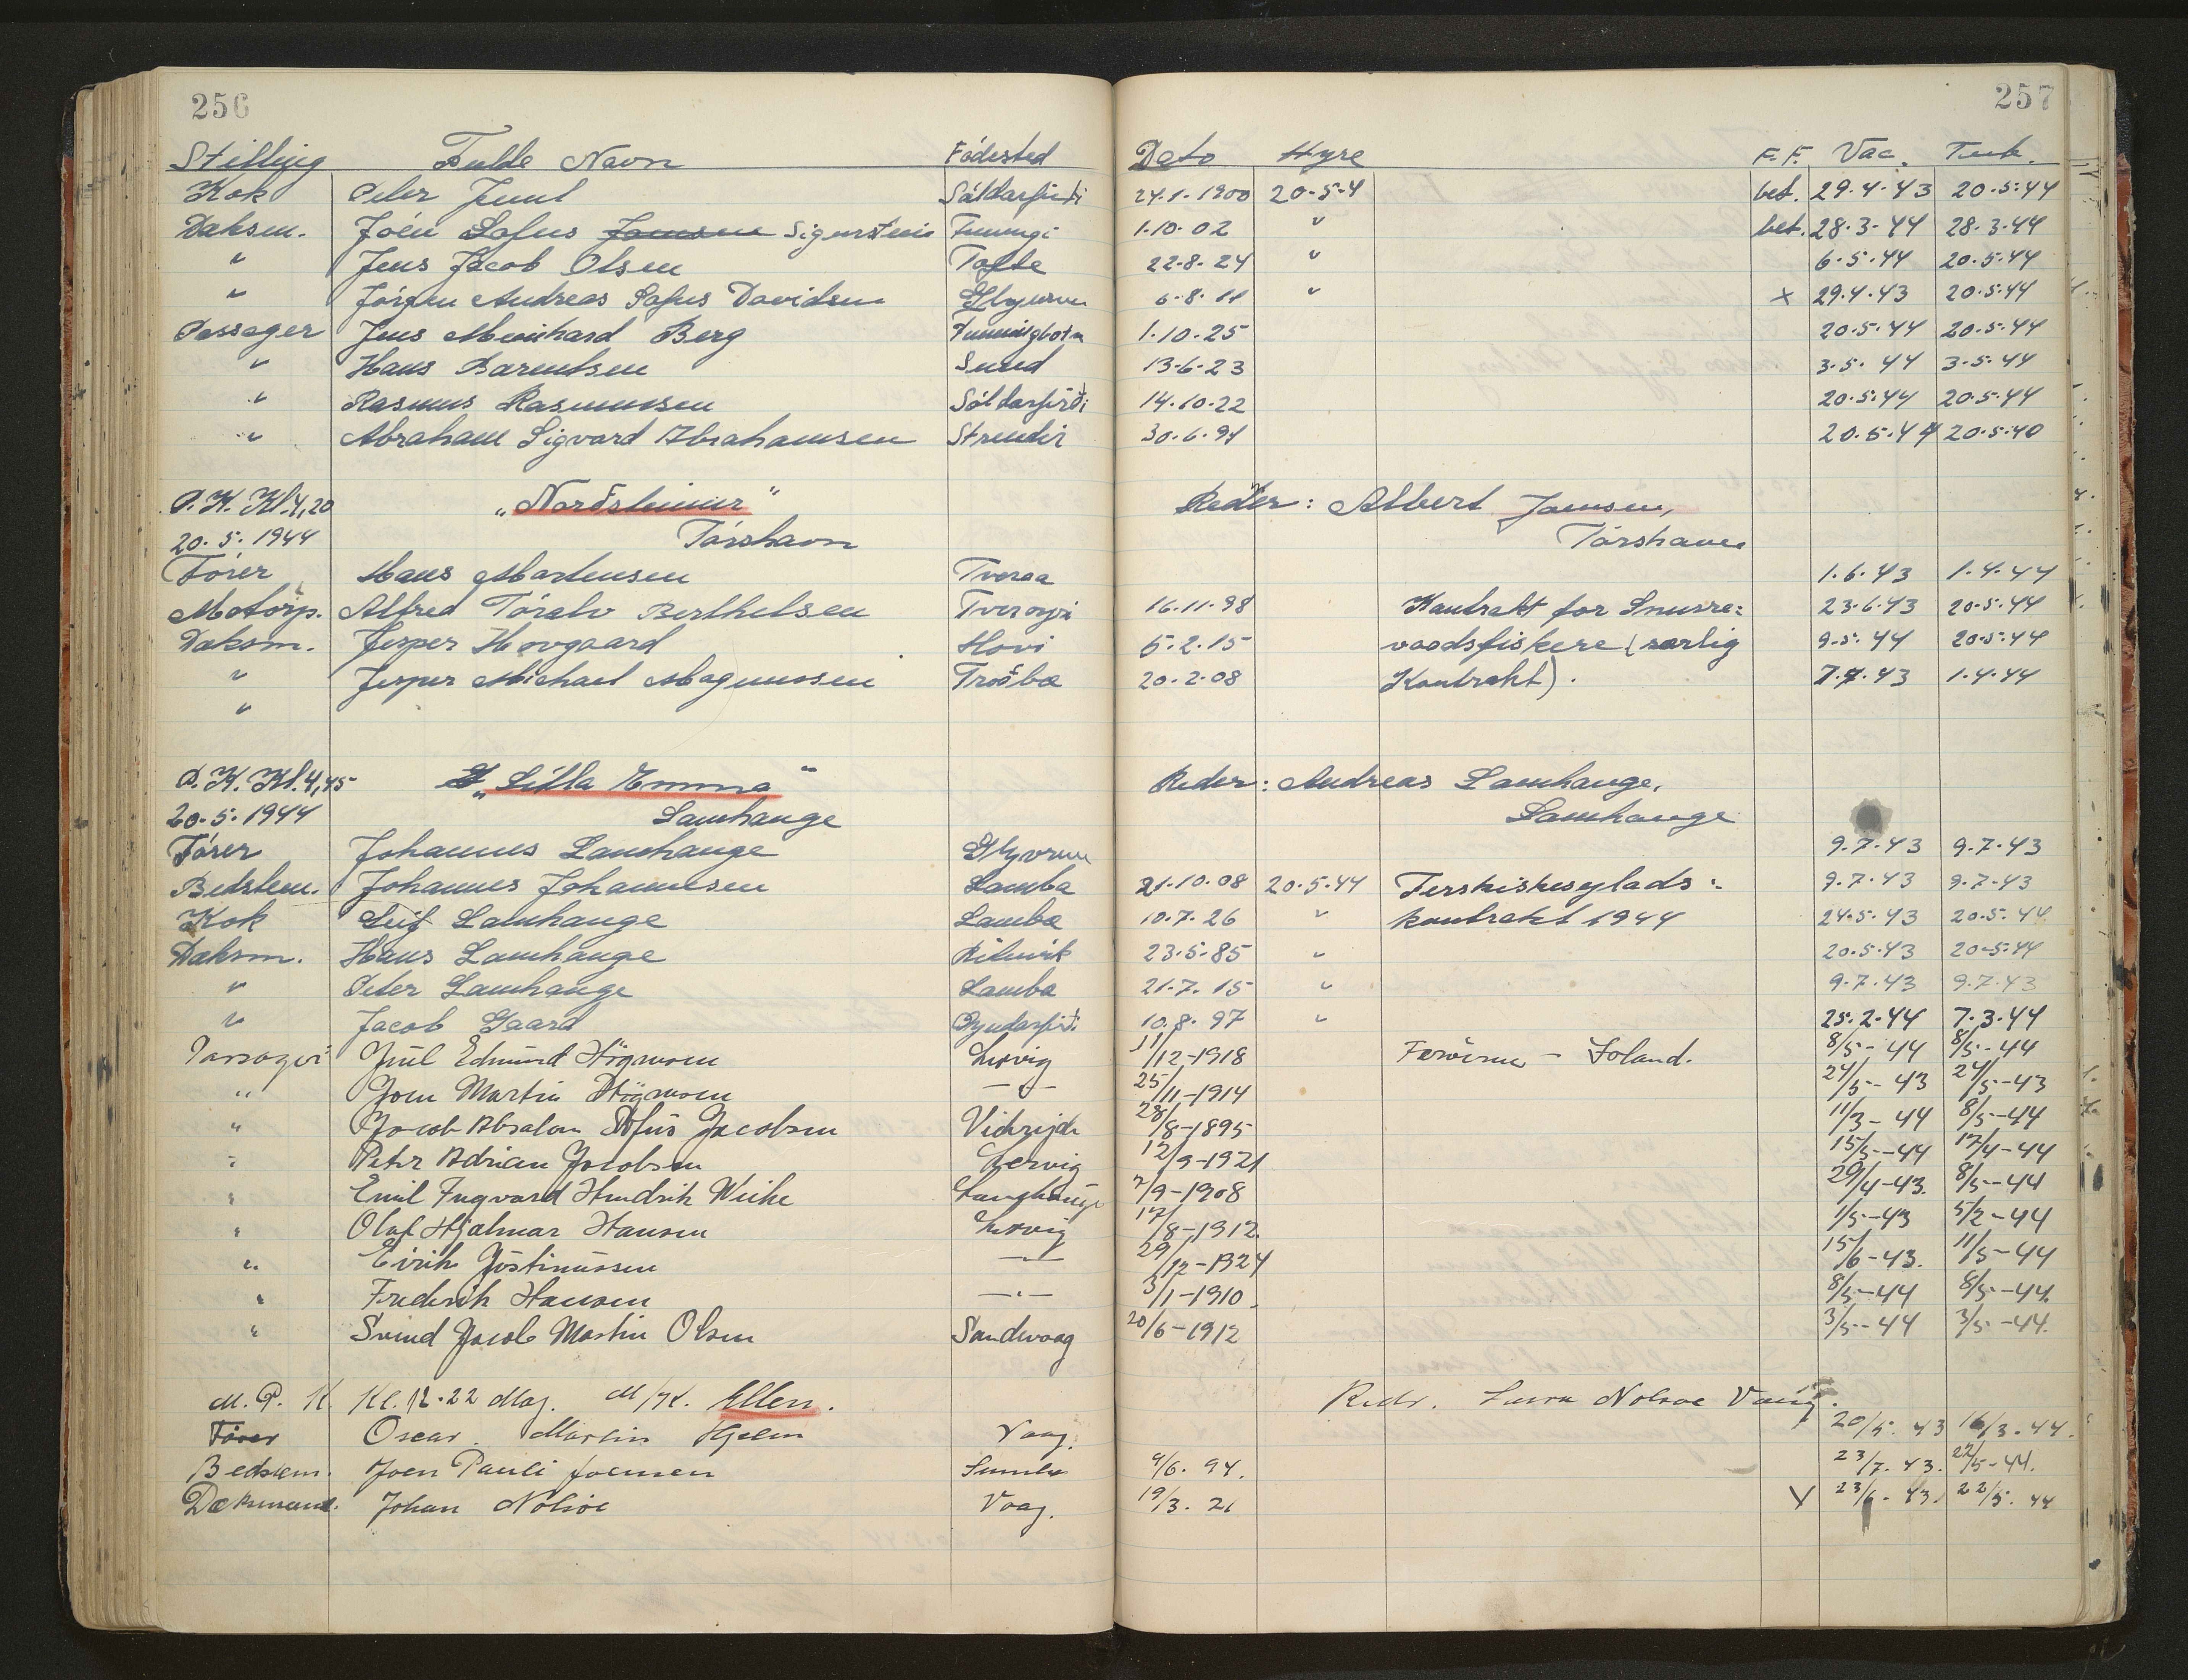 256
257
Stilling Fulde Navn Födested Dato Hyre F.F. Vac. Tub.
Kok Peter Juul Sáldarfirði 24.1.1900 20-5-4 bet. 29.4.43 20.5.44
Daksm. Jóen Sofus Joensen Sigurstein 1.10.02 " bet. 28.3.44 28.3.44
" Jens Jacob Olsen Tofte 22.8.24 " 6.5.44 20.5.44
" Jórgen Andreas Sofus Davidsen Glyvrum 6.8.11 " x 29.4.43 20.5.44
Passager Jens Meinhard Berg Funningbotn 1.10.25 20.5.44 20.5.44
" Hans Barentsen Sund 13.6.23 3.5.44 3.5.44
" Rasmus Rasmussen Sóldarfirði 14.10.22 20.5.44 20.5.44
" Abraham Sigvard Abrahamsen Strendir 30.6.94 20.5.44 20.5.40
P.K. Kl.4,20 „Nordsteinur“ Reder: Albert Joensen,
20.5.1944 Tórshavn Tórshavn
Fórer Hans Mortensen Tveraa 1.6.43 1.4.44
Motorp. Alfred Tóralv Berthelsen Tveroyri 16.11.98 Kontrakt for Snurre= 23.6.43 20.5.44
Daksm. Jesper Hovgaard Hovi 5.2.15 vaadsfiskere (særlig 9.5.44 20.5.44
" Jesper Michael Magnussen Troðbø 20.2.08 Kontrakt). 7.7.43 1.4.44
"
P.K. Kl.4,45 „Litla Emma“ Reder: Andreas Lamhauge,
20.5.1944 Lamhauge Lamhauge
Fórer Johannes Lamhauge Glyvrum 9.7.43 9.7.43
Bedstem. Johannes Johannesen Lamba 21.10.08 20.5.44 9.7.43 9.7.43
Kok Leif Lamhauge Lamba 10.7.26 " kontrakt 1944 24.5.43 20.5.44
Daksm. Hans Lamhauge Rituvik 23.5.85 " 20.5.43 20.5.44
" Peter Lamhauge Lamba 21.7.15 " 9.7.43 9.7.43
" Jacob Gaard 10.8.97 " 25.2.44 7.3.44
Passager Juul Edmund Högnesen Lervig 11/12-1918 Færöerne - Island. 8/5-44 8/5-44
" Joen Martin Högnesen —"— 25/11-1914 24/5-43 24/5-43
" Jacob Absalon Jacobsen 28/8-1895 11/3-44 8/5-44
" Peter Adrian Jacobsen Lervig 12/9-1921 15/5-44 17/4-44
" Emil Ingvard Hendrik Weihe 7/9-1908 29/4-43. 8/5-44
" Olaf Hjalmar Hansen Lervig 17/8-1912. 1/5-43 5/2-44
" Eirik Jóstinussen —"— 29/12-1924 15/6-43. 11/5-44
" Frederik Hansen —"— 3/1-1910. 8/5-44 8/5-44.
" Svend Jacob Martin Olsen Sandvaag 20/6-1912 3/5-44 3/5-44.
M. P. K. Kl. 12.22 Maj. M/K. Ellen. Redr. Nolsøe Vaag.
Fører Oscar Martin Hjelm Vaag. 20/5. 43 16/3. 44.
Bedstem. Joen Pauli Joensen Sumbø 9/6. 94. 23/7. 43. 22/5-44.
Dæksmand. Johan Nolsöe Vaag. 19/3. 21 X 23/6. 43. 22/5. 44